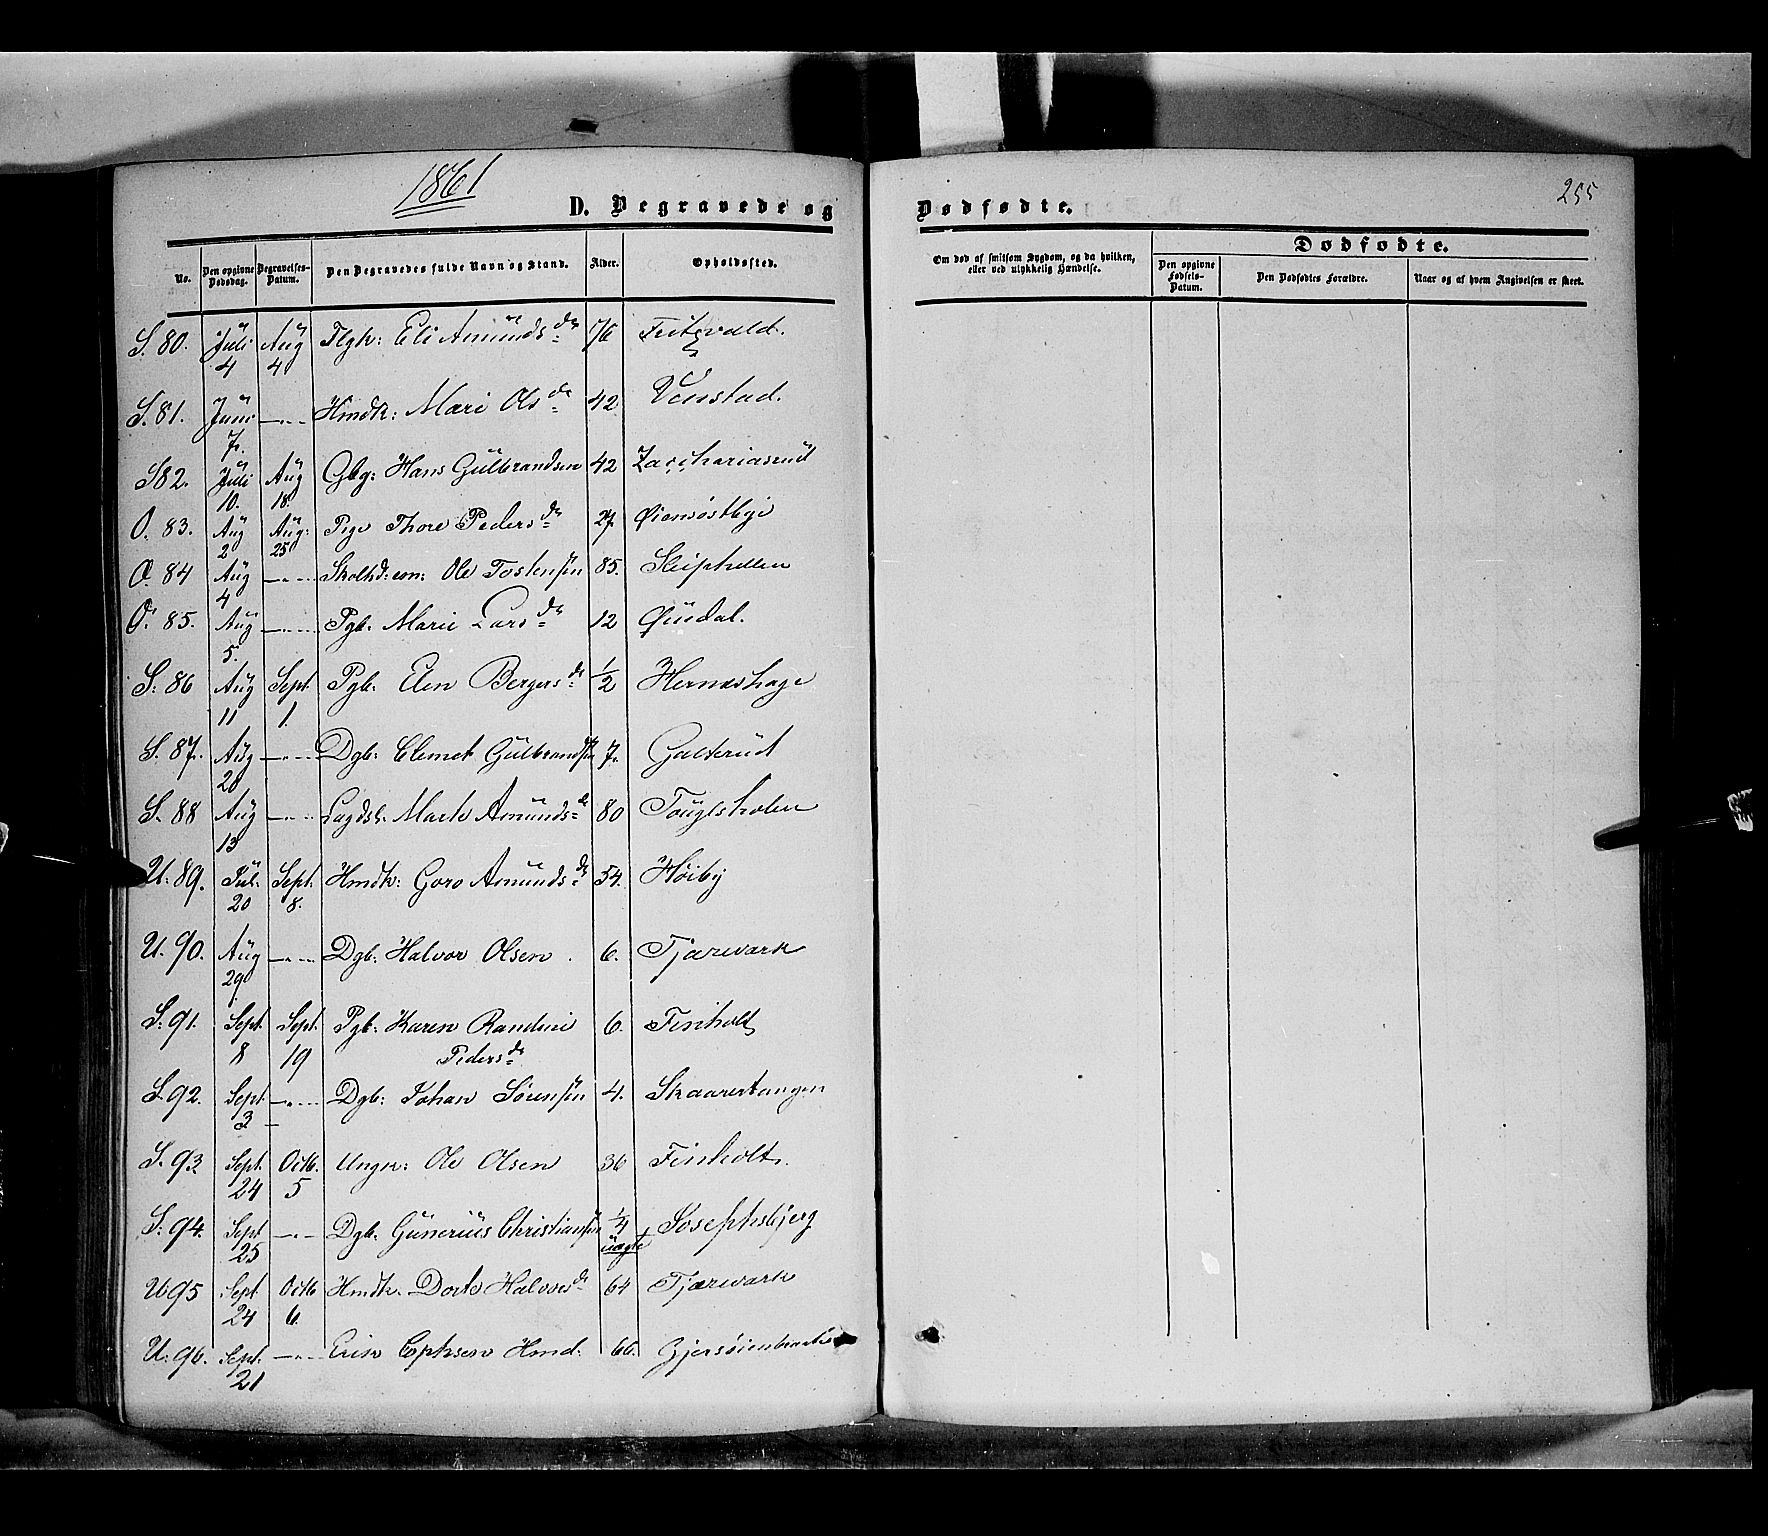 1861
255
D. Begravede og Dødfødte.
No. Den opgivne Dødsdag. Begravelses-Datum. Den Begravedes fulde Navn og Stand. Alder. Opholdssted. Om død af smitsom Sygdom, og da hvilken, eller ved ulykkelig Hændelse. Dødfødte. Den opgivne Fødsels-Datum. Den Dødfødtes Forældre. Naar og af hvem Angivelsen er skeet.
S. 80. Juli 4 Aug 4 Flgk: Eli Amunds dr 76 Fritzvald.
S. 81. Juni 7. —„— Hmdk: Mari Ols dr 42 Venstad.
S 82. Juli 10. Aug 18. Gbg: Hans Gulbrandsen 42 Zacchariasrud
O. 83. Aug 2 Aug: 25 Pige Thore Peders dr 27 Øiemøstbye
O. 84 Aug 4 —„— Ole Tostensen 85. Sleiphellen
O. 85. Aug 5. —„— Pgb. Marie Lars dr 12 Øiudal.
S: 86 Aug 11 Sept. 1. Pgb. Elen Bergers dr 1/2 Herneshage
S. 87. Aug 20 —„— Dgb: Clemet Gulbrandsen 7. Galterud
S. 88 Aug 13 —„— Lagdsl. Marte Amunds dr 80 Touglsholen
U. 89. Jul. 20 Sept. 8. Hmdk: Goro Amunds dr 54. Høiby
U. 90. Aug 29 —„— Dgb: Halvor Olsen. 6. Tjærevark
S: 91. Sept. 8 Sept. 19 Pgb: Karen Randine 6. Finholt
Peders dr
S. 92. Sept 3 —„— Dgb: Johan Sørensen 4. Skaarertangen
S. 93 Sept. 24 Octb. 5 Ungk: Ole Olsen 36 Finholt.
S: 94. Sept 25 —„— Dgb: Gunerius Christiansen 1/4 uægte Josephsbjerg
U. 95 Sept 24 Octb 6. Hmdk. Dorte Halvors dr 64 Tjærevark
U: 96. Sept. 21 —„— Erik Ephsen Hmd. 66.